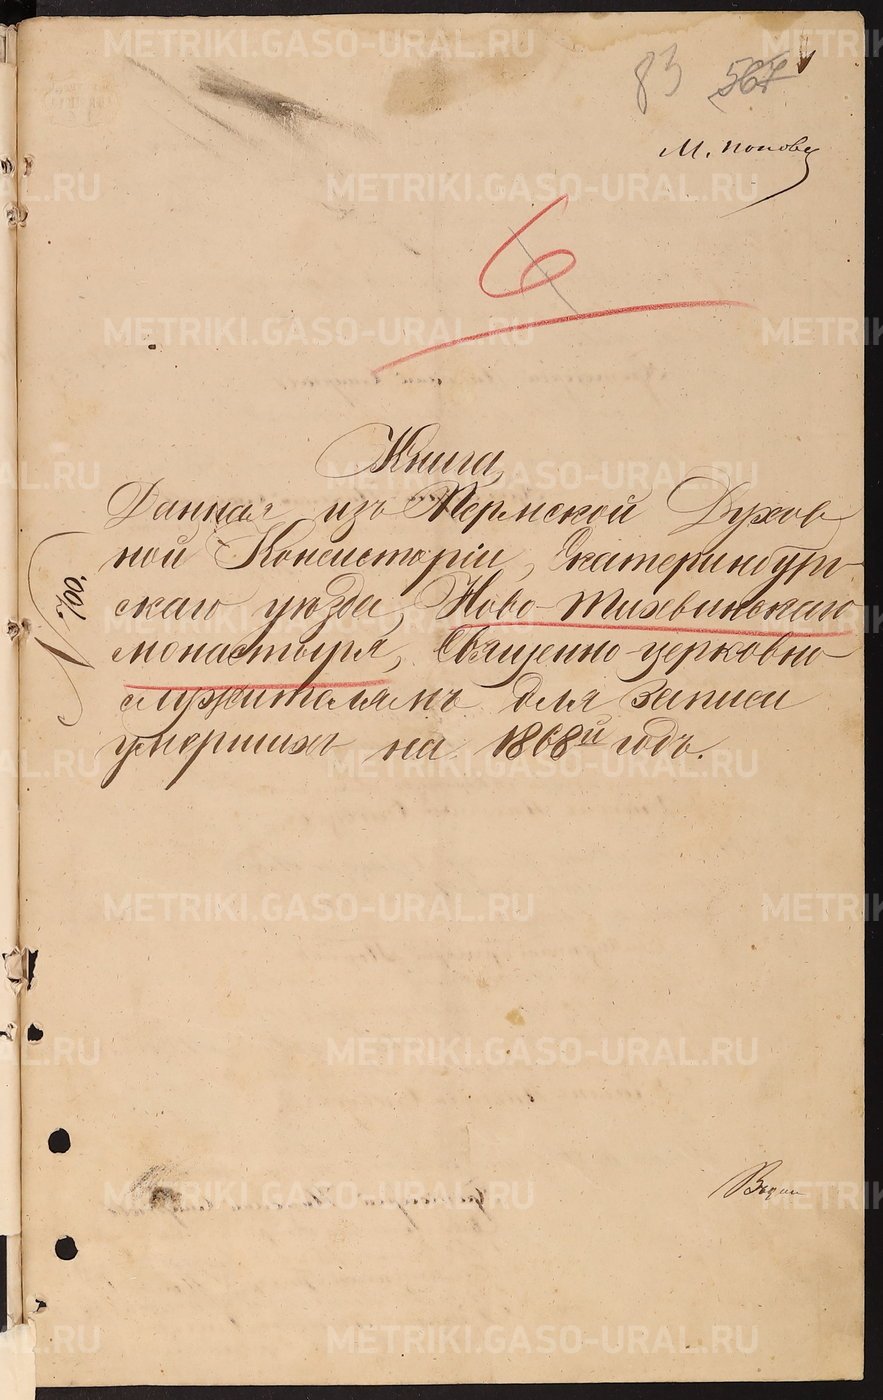 83 567
М. Попова
6
Книга,
Данная изъ Пермской Духов
ной Консисторіи, Екатеринбург-
скаго уѣзда, Ново-Тихвинскаго
монастыря, Священно-церковно-
служителямъ для записи
умершихъ на 1868й годъ.
N 700.
METRIKI.GASO-URAL.RU